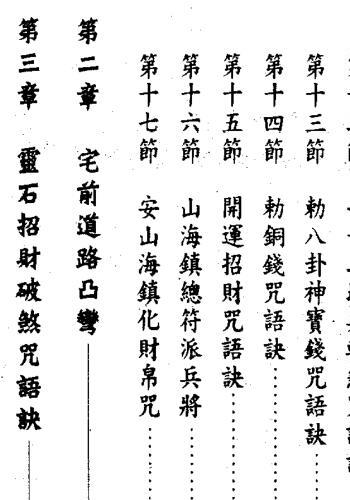 第十三節 勅八卦神寶錢咒語訣
第十四節 勅銅錢咒語訣
第十五節 開運招財咒語訣
第十六節 山海鎮總符派兵將
第十七節 安山海鎮化財帛咒
第二章 宅前道路凸彎
第三章 靈石招財破煞咒語訣